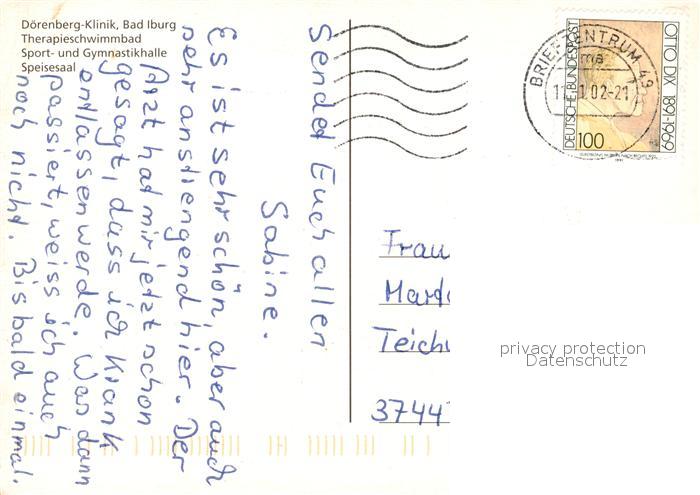 Dörenberg-Klinik, Bad Iburg
Therapieschwimmbad
Sport- und Gymnastikhalle
Speisesaal
Sendet Euch allen
Sabine.
Es ist sehr schön, aber auch
sehr anstrengend hier. Der
Arzt hat mir jetzt schon
gesagt, dass ich krank
entlassen werde. Was dann
passiert, weiss ich auch
noch nicht. Bis bald einmal.
BRIEFZENTRUM 49
ma
1.02-21
DEUTSCHE BUNDESPOST
OTTO DIX 1891-1969
100
Frau
Teich
3744
privacy protection
Datenschutz